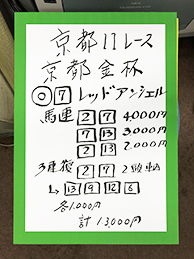 京都11レース
京都金杯
◎7 レッドアンジェル
馬連 2 7 4,000円
7 13 3,000円
2 13 2,000円
3連複 2 7 2頭軸
↳13 9 12 6
各1,000円
計13,000円